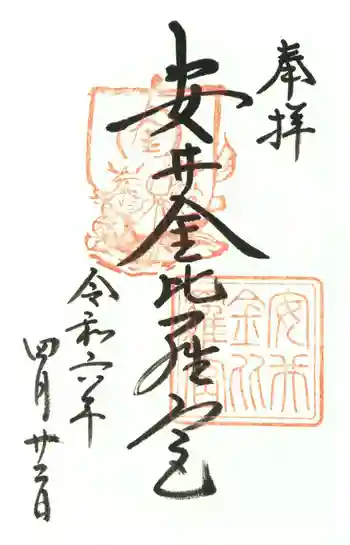 奉拝
安井金比羅宮
令和六年
四月廿三日
安井
金比
羅宮
金